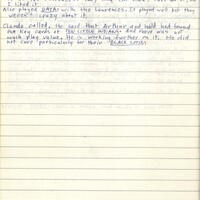 I liked it.
Also played DATA with the Laurences. It played well but they
weren't crazy about it.
Claude called. He said that Arthur and Wald had found
the key cards of "TEN LITTLE INDIANS" and there was not
much play value. He is working further on it. He did
not care particularly for their "BLACK